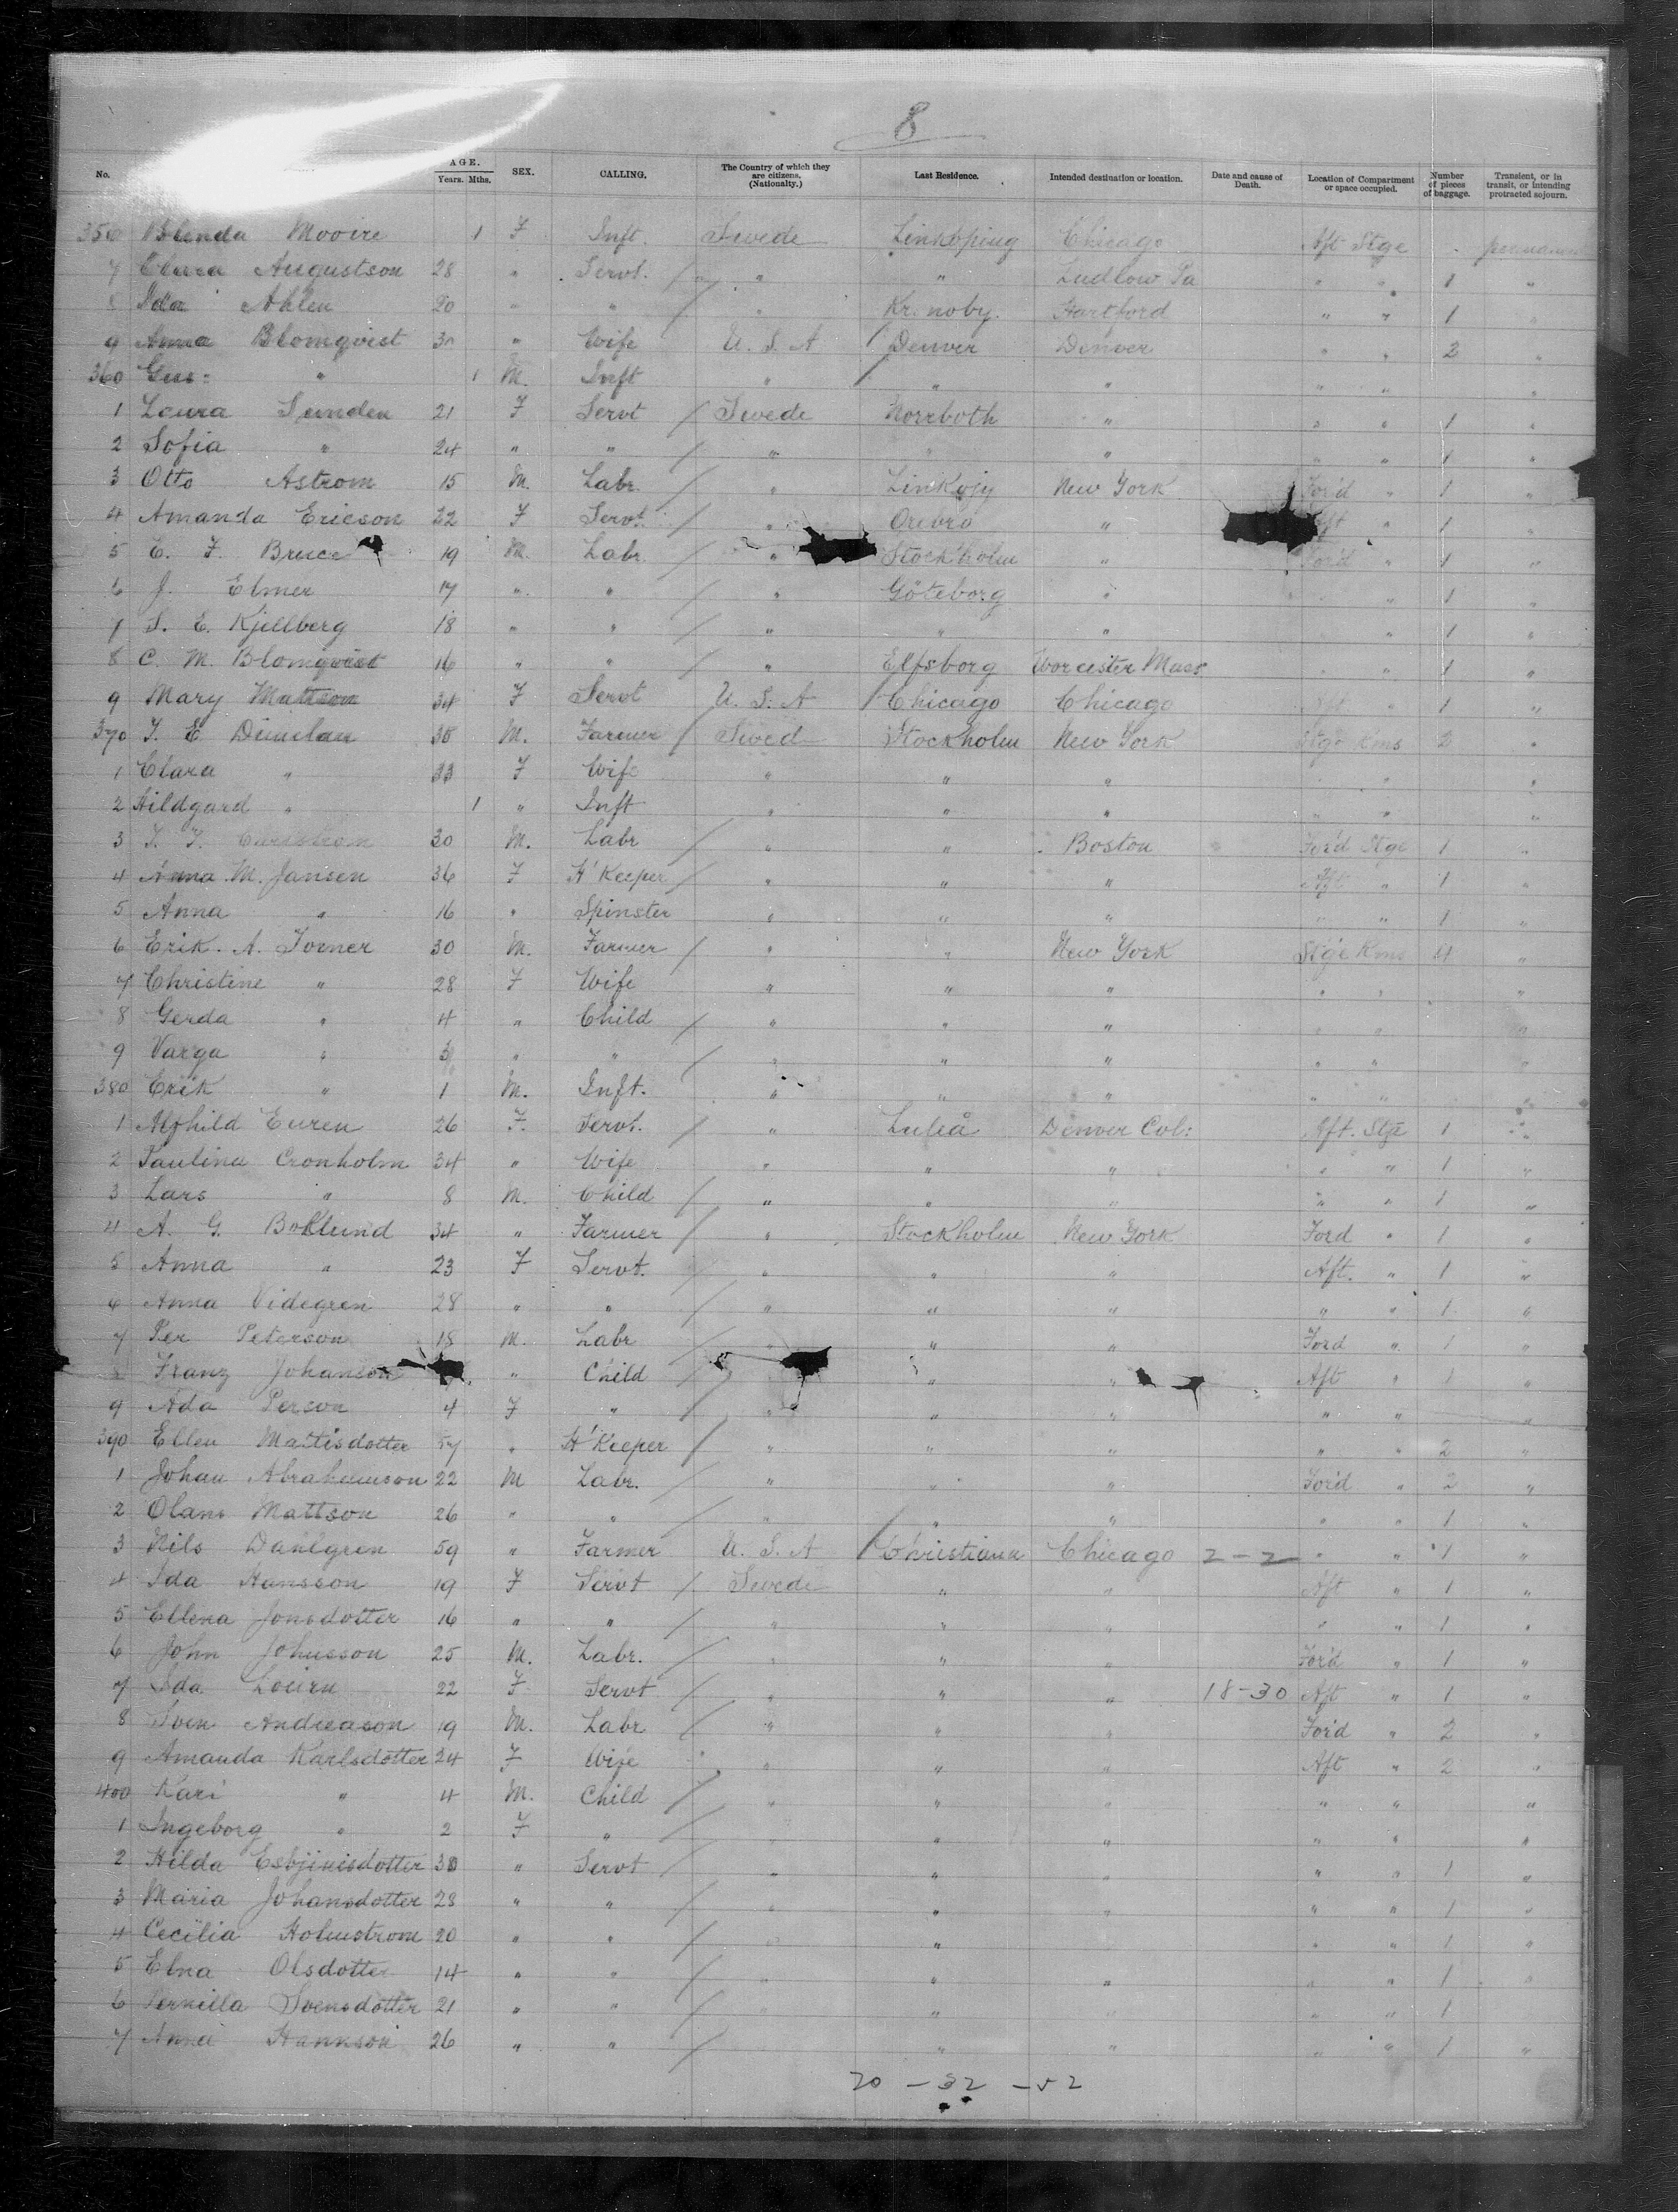 8
No. AGE. Years. Mths. SEX. CALLING. The Country of which they are citizens. (Nationality.) Last Residence. Intended destination or location. Date and cause of Death. Location of Compartment or space occupied. Number of pieces of baggage. Transient, or in transit, or intending protracted sojourn.
356 Blenda Mooire 1 F Inft. Swede Linkoping Chicago Aft Stge
7 Clara Augustson 28 " Servt. / " " Ludlow Pa " " 1 "
8 Ida Ahlen 20 " " / " Hartford " " 1 "
9 Anna Blomqvist 30 " Wife U.S.A / Denver Denver " " 2 "
360 Gus: " 1 M. Inft " " " " " "
1 Laura Sunden 21 F Servt / Swede Norrboth " " " 1 "
2 Sofia " 24 " " / " " " " " 1 "
3 Otto Astrom 15 M. Labr. / " New York For'd " 1 "
4 Amanda Ericson 22 F Servt. / " Orebro " Aft " 1 "
5 E. F. Bruce 19 M. Labr. " Stockholm " For'd " 1 "
6 J. Elmer 17 " " / " Göteborg " " 1 "
7 S. E. Kjellberg 18 " " / " " " " 1 "
8 C. M. Blomqvist 16 " " / " Elfsborg Worcester Mass " 1 "
9 Mary Mattson 34 F Servt U.S.A / Chicago Chicago Aft " 1 "
370 35 M. Farmer / Swed Stockholm New York Stge Rms 2 "
1 Clara " 33 F Wife " " " " " "
2 Hildgard " 1 " Inft " " " " " "
3 30 M. Labr / " " Boston For'd Stge 1 "
4 Anna M. Jansen 36 F H'Keeper / " " " Aft " 1 "
5 Anna " 16 " Spinster " " " " " 1 "
6 Erik. A. 30 M. Farmer / " " New York Stge Rms 4 "
7 Christine " 28 F Wife " " " " " "
8 Gerda " 4 " Child / " " " " " "
9 Varga " 3 " " / " " " " " "
380 Erik " 1 M. Inft. " " " " " "
1 Alfhild Euren 26 F. Servt. " Luleå Denver Col: Aft. Stge 1 "
2 Paulina Cronholm 34 " Wife " " " " " 1 "
3 Lars " 8 M. Child / " " " " " 1 "
4 A. G. Boklund 34 " Farmer / " Stockholm New York Ford " 1 "
5 Anna " 23 F Servt. / " " " Aft. " 1 "
6 Anna Videgren 28 " " / " " " " " 1 "
7 Per Peterson 18 M. Labr / " " " Ford " 1 "
8 Franz Johanson " Child / " " Aft " 1 "
9 Ada Person 4 F " / " " " " " "
390 Ellen Mattisdotter 57 " H'Keeper / " " " " " 2 "
1 Johan Abrahamson 22 M Labr. " " " For'd " 2 "
2 Olans Mattson 26 " " / " " " " " 1 "
3 Nils Dahlgren 59 " Farmer U.S.A / Christiana Chicago 2-2 " " 1 "
4 Ida Hansson 19 F Servt / Swede " " Aft " 1 "
5 Ellena Jonsdotter 16 " " / " " " " " 1 "
6 John Johnsson 25 M. Labr. / " " " For'd " 1 "
7 Ida 22 F Servt / " " " 18-30 Aft " 1 "
8 Sven Andreason 19 M. Labr / " " " For'd " 2 "
9 Amanda Karlsdotter 24 F Wife " " " Aft " 2 "
400 Karl " 4 M. Child / " " " " " "
1 Ingeborg " 2 F " / " " " " "
2 Hilda 30 " Servt / " " " " " 1 "
3 Maria Johansdotter 28 " " / " " " " " 1 "
4 Cecilia Holmstrom 20 " " / " " " " " 1 "
5 Elna Olsdotter 14 " " / " " " " " 1 "
6 Pernilla Svensdotter 21 " " / " " " " " 1 "
7 Anna Hankson 26 " " / " " " " 1 "
20 - 32 - 52